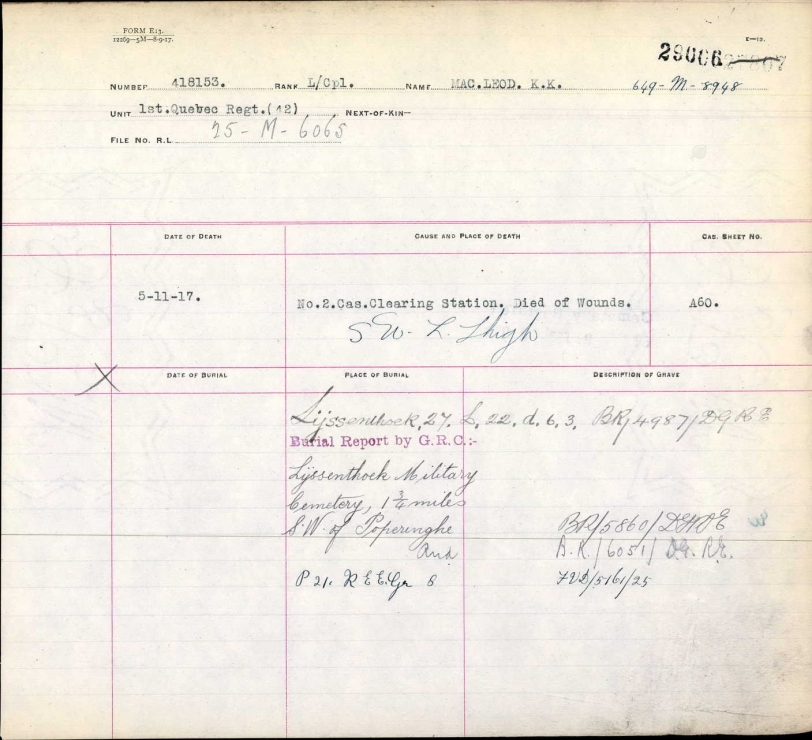 FORM E13.
12269—5M—8-9-17.
E—13.
29006
NUMBER 418153. RANK L/Cpl. NAME MAC.LEOD. K.K. 649-M-8948
UNIT 1st.Quebec Regt.(42) NEXT-OF-KIN—
FILE NO. R.L. 25-M-6065
DATE OF DEATH CAUSE AND PLACE OF DEATH CAS. SHEET NO.
5-11-17. No.2.Cas.Clearing Station. Died of Wounds. A60.
S W. L. Thigh
DATE OF BURIAL PLACE OF BURIAL DESCRIPTION OF GRAVE
Lijssenthoek, 27. L, 22, d. 6, 3, BR/4987/DGRE
Burial Report by G.R.C:-
Lijssenthoek Military
Cemetery, 1 3/4 miles
S.W. of Poperinghe
BR/5860/
B.R./6051/ D.G.R.E.
P 21. R E E. Gr 8